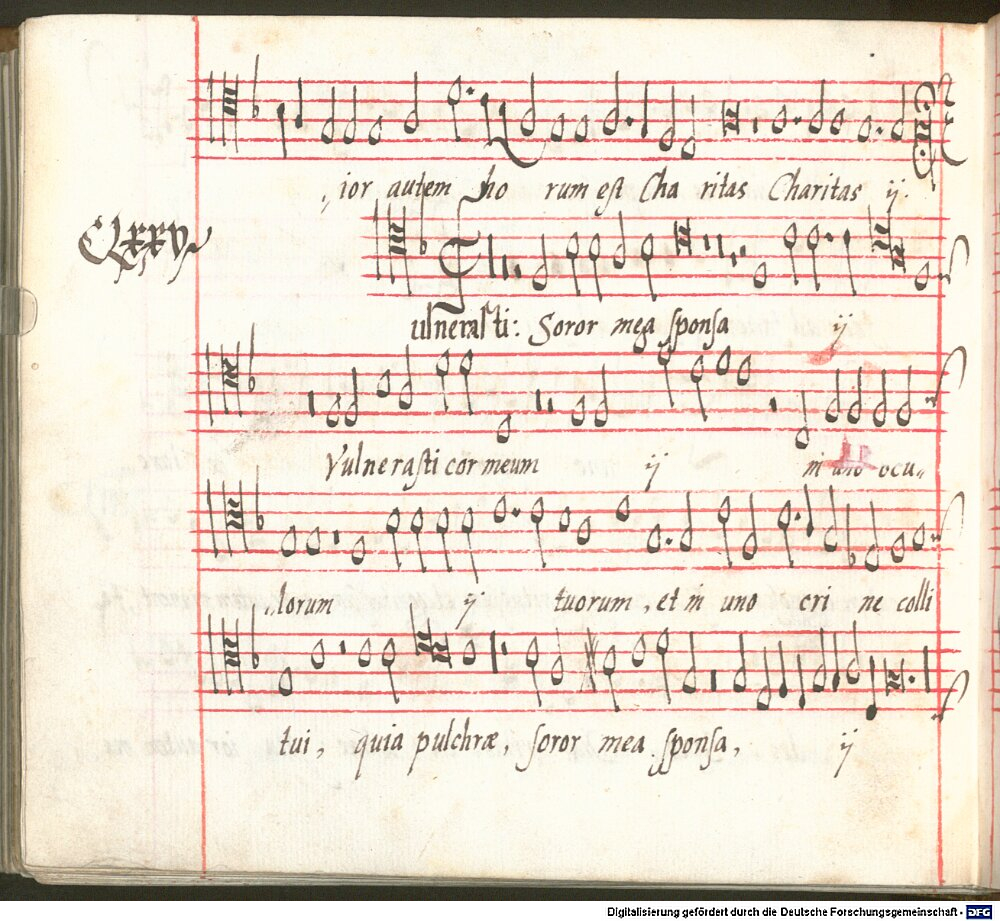 „ior autem ho rum est Cha ritas Charitas ij.
CLXXV
Vulnerasti: Soror mea sponsa ij
Vulnerasti cor meum ij in uno ocu„
„lorum ij tuorum, et in uno cri ne colli
tui, quia pulchræ, soror mea sponsa, ij
Digitalisierung gefördert durch die Deutsche Forschungsgemeinschaft - DFG